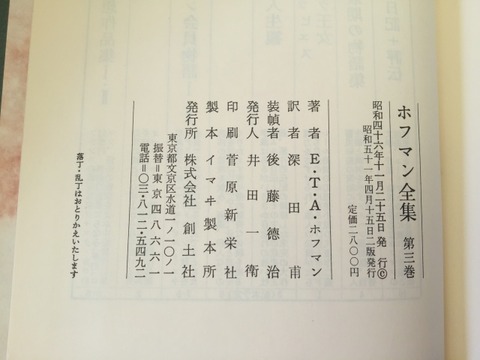 ホフマン全集 第三巻
昭和四十六年十一月二十五日 発 行©
昭和五十一年四月十五日二版発行
定価二八〇〇円
著者 E・T・A・ホフマン
訳者 深田甫
装幀者 後藤徳治
発行人 井田一衛
印刷 菅原新栄社
製本 イマヰ製本所
発行所 株式会社 創土社
東京都文京区水道一ノ一〇ノ一
振替=東京四八六六一
電話=〇三・八一二・五四九二
落丁・乱丁はおとりかえいたします